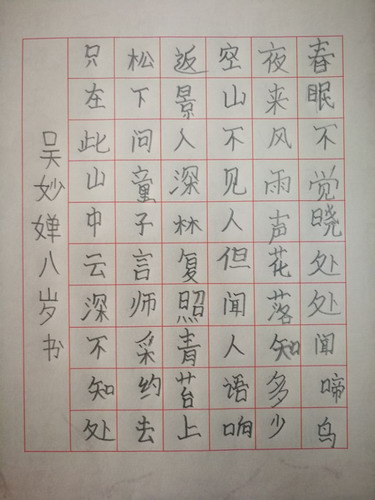 春眠不觉晓处处闻啼鸟
夜来风雨声花落知多少
空山不见人但闻人语响
返景入深林复照青苔上
松下问童子言师采约去
只在此山中云深不知处
吴妙婵八岁书